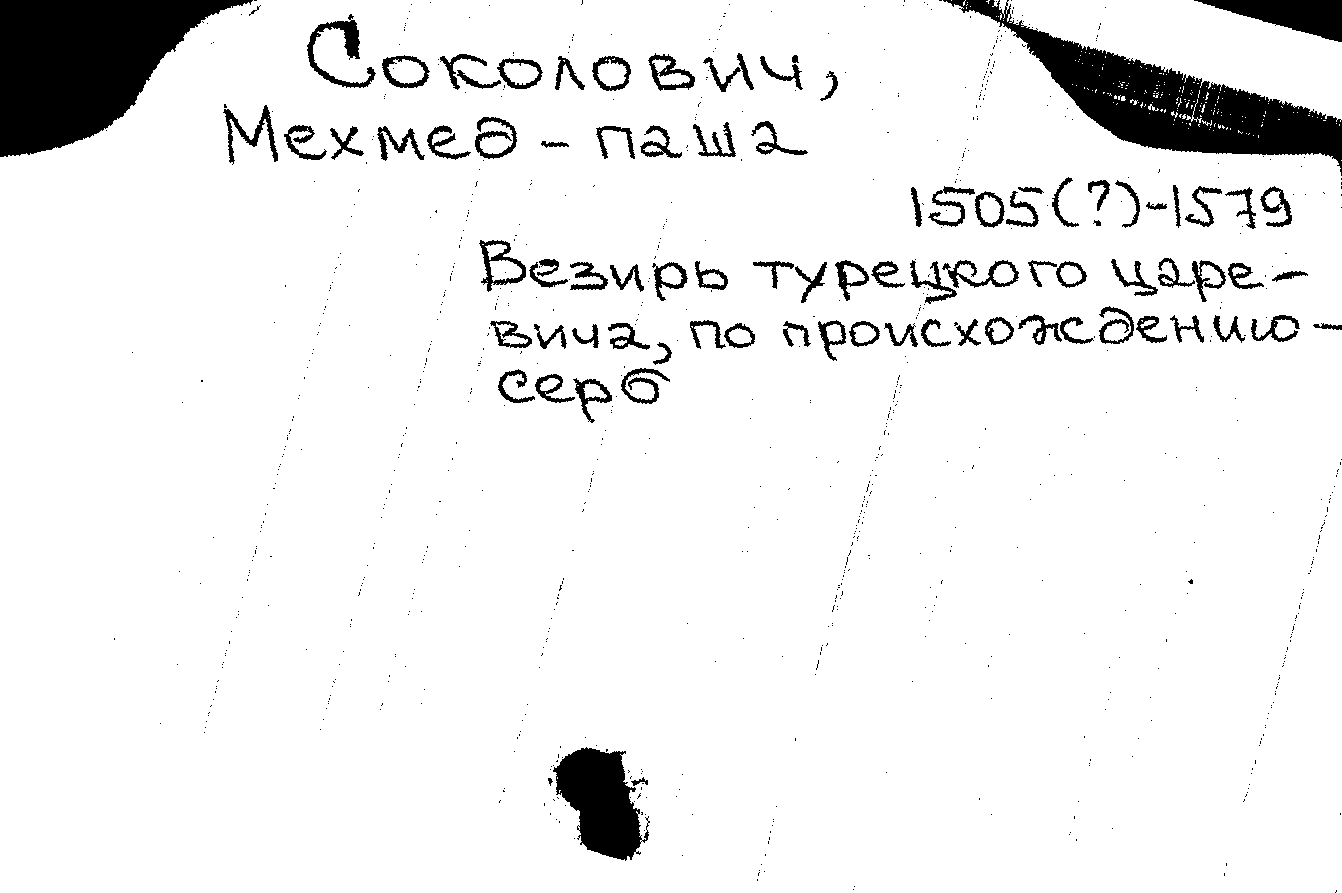 Соколович,
Мехмед - паша
1505(?)-1579
Везирь турецкого царе-
вича, по происхождению -
серб